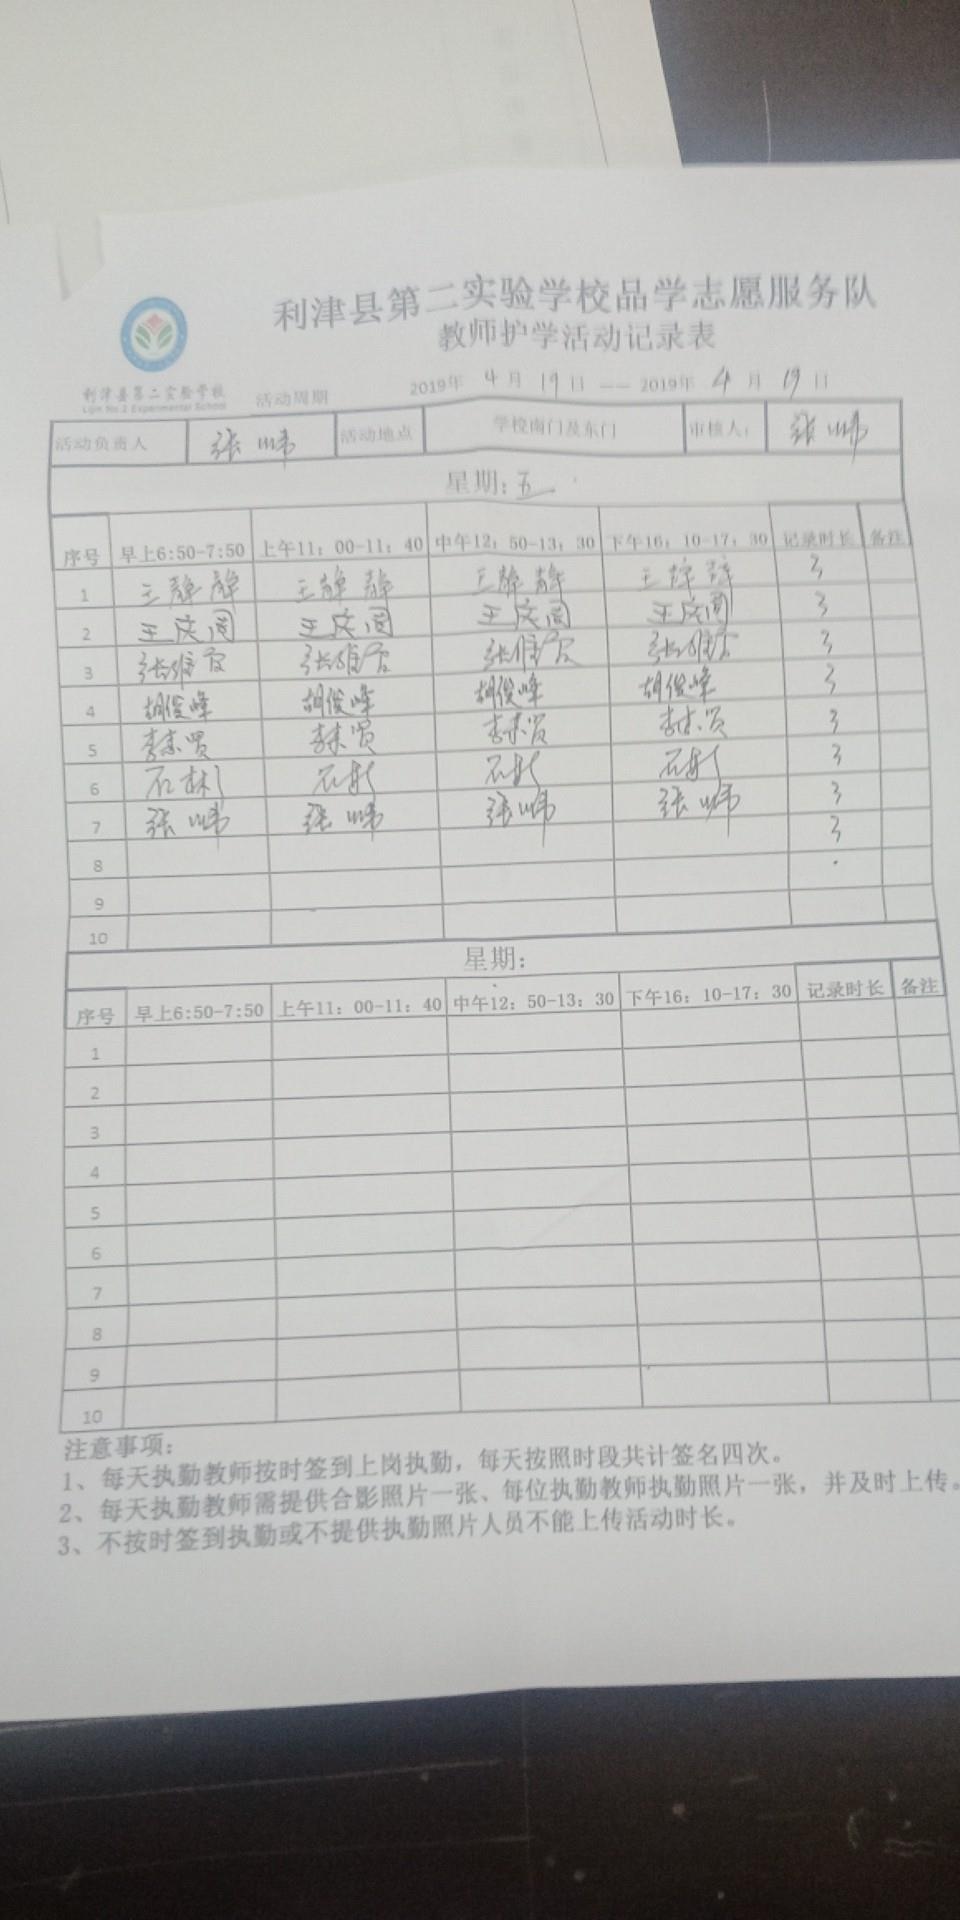 利津县第二实验学校品学志愿服务队
教师护学活动记录表
利津县第二实验学校
Lijin No.2 Experimental School
活动周期 2019年 4 月 19 日 —— 2019年 4 月 19 日
活动负责人 张 活动地点 学校南门及东门 审核人: 张
星期: 五
序号 早上6:50-7:50 上午11: 00-11: 40 中午12: 50-13: 30 下午16: 10-17: 30 记录时长 备注
1 王静静 王静静 王静静 王静静 3
2 王庆圆 王庆圆 王庆圆 王庆圆 3
3 张维 张维 张维 张维 3
4 胡俊峰 胡俊峰 胡俊峰 胡俊峰 3
5 李志贤 李志贤 李志贤 李志贤 3
6 石 石 石 石 3
7 张 张 张 张 3
8 3
9
10
星期:
序号 早上6:50-7:50 上午11: 00-11: 40 中午12: 50-13: 30 下午16: 10-17: 30 记录时长 备注
1
2
3
4
5
6
7
8
9
10
注意事项:
1、每天执勤教师按时签到上岗执勤，每天按照时段共计签名四次。
2、每天执勤教师需提供合影照片一张、每位执勤教师执勤照片一张，并及时上传。
3、不按时签到执勤或不提供执勤照片人员不能上传活动时长。